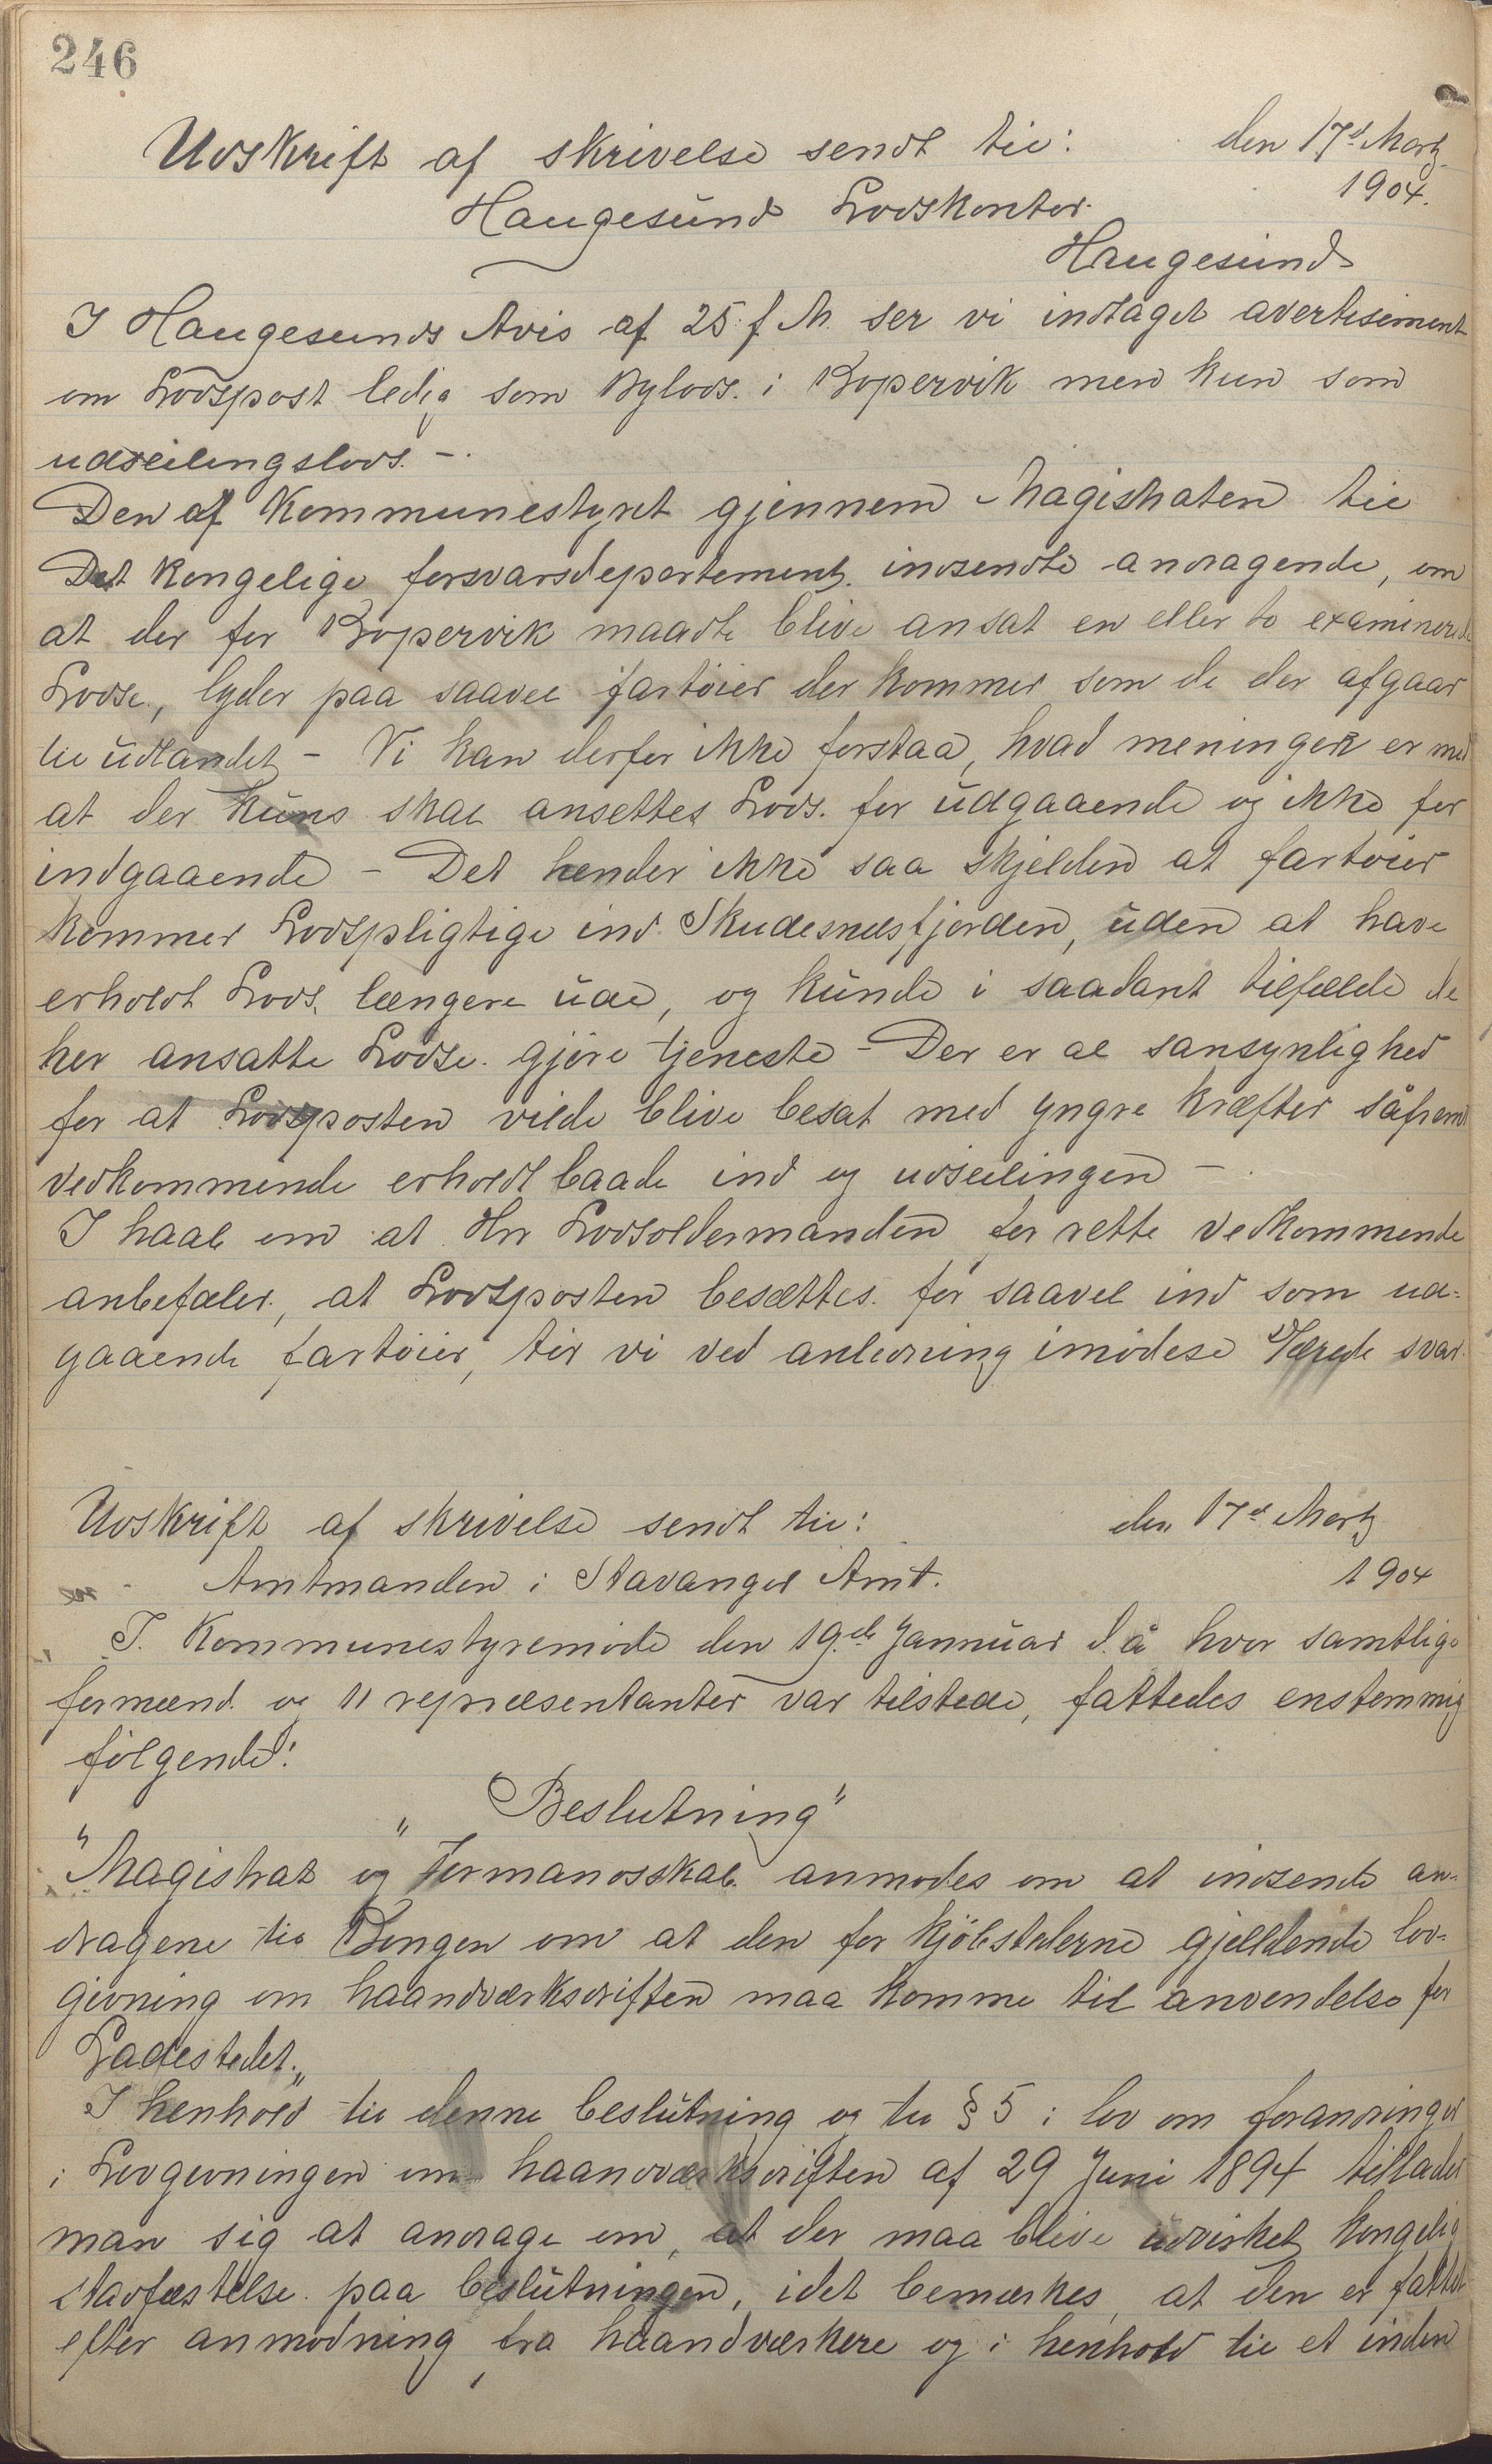 246
Udskrift af skrivelse sendt til: den 17d Martz
1904.
Haugesund Lodskontor.
Haugesund
I Haugesunds Avis af 25 f. M. ser vi indtaget avertisement
om Lodspost ledig som Bylods. i Kopervik men kun som
udseilingslods. -.
Den af Kommunestyret gjennem Magistraten til
Det Kongelige forsvarsdepartement. indsendte andragende, om
at der for Kopervik maadte blive ansat en eller to examinerede
Lodse, lyder paa saavel fartøier der kommer som de der afgaar
til udlandet - Vi kan derfor ikke forstaa, hvad meningen er med
at der kuns skal ansettes Lods. for udgaaende og ikke for
indgaaende - Det hender ikke saa skjelden at fartøier
kommer Lodspligtige ind Skudesnesfjorden, uden at have
erholdt Lods. længere ude, og kunde i saadant tilfælde de
her ansatte Lodse. gjøre tjeneste - Der er al sansynlighed
for at Lodsposten vilde blive besat med yngre kræfter såfremt
vedkommende erholdt baade ind og udseilingen -.
I haab om at Hr Lodsoldermanden for rette vedkommende
anbefaler, at Lodsposten besættes. for saavel ind som ud-
gaaende fartøier, tør vi ved anledning imødese Ærede svar.
Udskrift af skrivelse sendt til: den 17d Martz
Amtmanden i Stavanger Amt. 1904
I. Kommunestyremøde den 19.de Jannuar d. å hvor samtlige
formænd. og 11 repræsentanter var tilstede, fattedes enstemmig
følgende:
"Beslutning"
"Magistrat og Formandsskab. anmodes om at indsende an-
dragene til Kongen om at den for kjøbstederne gjeldende lov-
givning om haandværksdriften maa komme til anvendelse for
Ladestedet."
I henhold til denne beslutning og til § 5 i lov om forandringer
i Lovgivningen om haandværksdriften af 29 Juni 1894 tillader
man sig at andrage om, at der maa blive udvirket kongelig
stadfæstelse. paa beslutningen, idet bemærkes, at den er fattet
efter anmodning fra haandværkere og i henhold til et inden